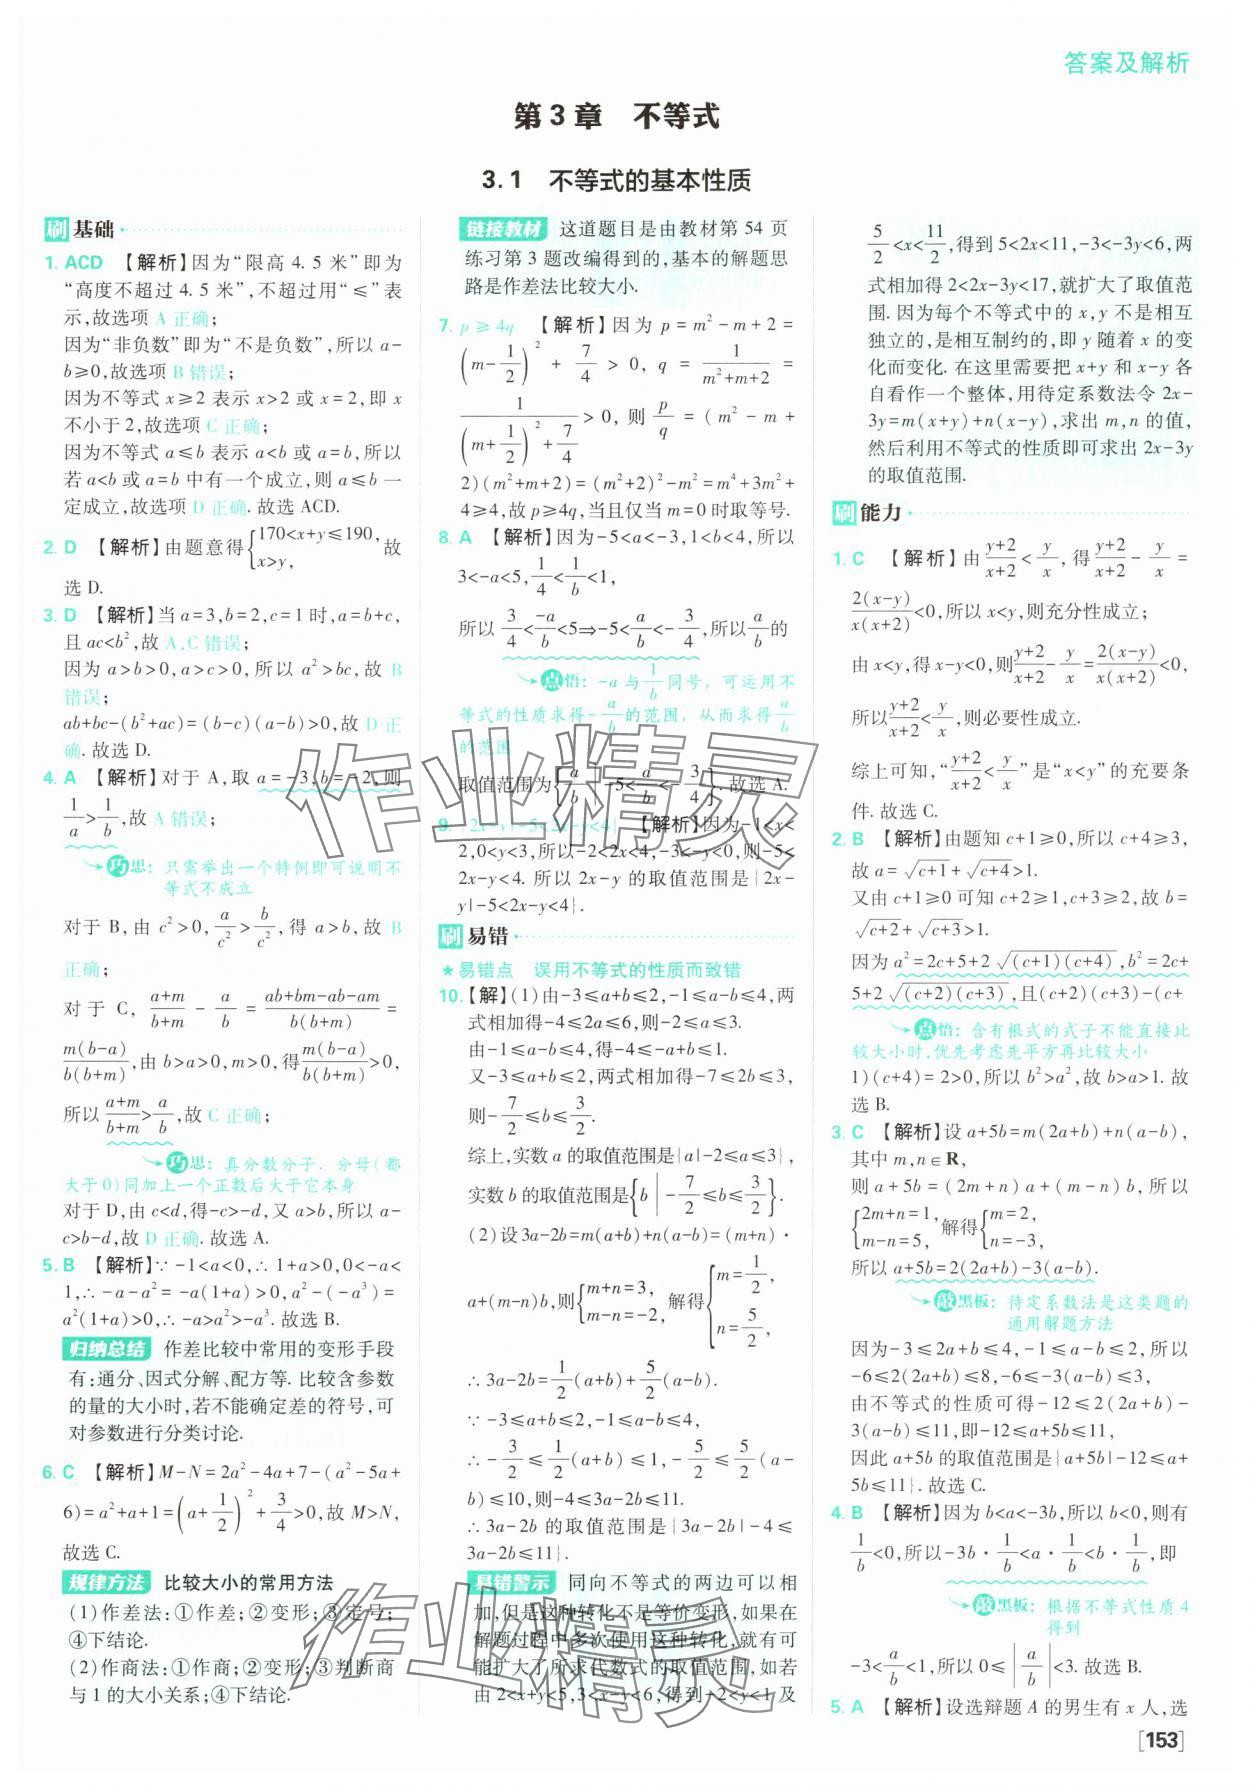 答案及解析
第3章 不等式
3.1 不等式的基本性质
刷 基础
1. ACD 【解析】因为“限高 4.5 米”即为
“高度不超过 4.5 米”,不超过用“≤”表
示,故选项 A 正确;
因为“非负数”即为“不是负数”,所以 a-
b≥0,故选项 B 错误;
因为不等式 x≥2 表示 x>2 或 x=2,即 x
不小于 2,故选项 C 正确;
因为不等式 a≤b 表示 a<b 或 a=b,所以
若 a<b 或 a=b 中有一个成立,则 a≤b 一
定成立,故选项 D 正确. 故选 ACD.
2. D 【解析】由题意得{170<x+y≤190, x>y, 故
选 D.
3. D 【解析】当 a=3,b=2,c=1 时,a=b+c,
且 ac<b²,故 A,C 错误;
因为 a>b>0,a>c>0,所以 a²>bc,故 B
错误;
ab+bc-(b²+ac)=(b-c)(a-b)>0,故 D 正
确. 故选 D.
4. A 【解析】对于 A,取 a=-3,b=-2,则
1/a>1/b,故 A 错误;
巧思: 只需举出一个特例即可说明不
等式不成立
对于 B,由 c²>0,a/c²>b/c²,得 a>b,故 B
正确;
对于 C, (a+m)/(b+m) - a/b = (ab+bm-ab-am)/(b(b+m)) =
m(b-a)/(b(b+m)),由 b>a>0,m>0,得 m(b-a)/(b(b+m))>0,
所以 (a+m)/(b+m)>a/b,故 C 正确;
巧思: 真分数分子、分母(都
大于0)同加上一个正数后大于它本身
对于 D,由 c<d,得-c>-d,又 a>b,所以 a-
c>b-d,故 D 正确. 故选 A.
5. B 【解析】∵ -1<a<0,∴ 1+a>0,0<-a<
1,∴ -a-a²=-a(1+a)>0,a²-(-a³)=
a²(1+a)>0,∴ -a>a²>-a³. 故选 B.
归纳总结 作差比较中常用的变形手段
有:通分、因式分解、配方等. 比较含参数
的量的大小时,若不能确定差的符号,可
对参数进行分类讨论.
6. C 【解析】M-N=2a²-4a+7-(a²-5a+
6)=a²+a+1=(a+1/2)²+3/4>0,故 M>N,
故选 C.
规律方法 比较大小的常用方法
(1)作差法:①作差;②变形;③定号;
④下结论.
(2)作商法:①作商;②变形;③判断商
与 1 的大小关系;④下结论.
链接教材 这道题目是由教材第 54 页
练习第 3 题改编得到的,基本的解题思
路是作差法比较大小.
7. p≥4q 【解析】因为 p=m²-m+2=
(m-1/2)²+7/4>0, q=1/(m²+m+2)=
1/((m+1/2)²+7/4)>0, 则 p/q=(m²-m+
2)(m²+m+2)=(m²+2)²-m²=m⁴+3m²+
4≥4,故 p≥4q,当且仅当 m=0 时取等号.
8. A 【解析】因为-5<a<-3,1<b<4,所以
3<-a<5,1/4<1/b<1,
所以 3/4<-a/b<5⇒-5<a/b<-3/4,所以 a/b 的
点悟: -a 与 1/b 同号,可运用不
等式的性质求得-a/b的范围,从而求得a/b
的范围
取值范围为{a/b | -5<a/b<-3/4}. 故选 A.
9. {2x-y|-5<2x-y<4} 【解析】因为-1<x<
2,0<y<3,所以-2<2x<4,-3<-y<0,则-5<
2x-y<4. 所以 2x-y 的取值范围是{2x-
y|-5<2x-y<4}.
刷 易错
★易错点 误用不等式的性质而致错
10.【解】(1)由-3≤a+b≤2,-1≤a-b≤4,两
式相加得-4≤2a≤6,则-2≤a≤3.
由-1≤a-b≤4,得-4≤-a+b≤1.
又-3≤a+b≤2,两式相加得-7≤2b≤3,
则-7/2≤b≤3/2.
综上,实数 a 的取值范围是{a|-2≤a≤3},
实数 b 的取值范围是{b | -7/2≤b≤3/2}.
(2)设 3a-2b=m(a+b)+n(a-b)=(m+n)·
a+(m-n)b,则{m+n=3, m-n=-2, 解得{m=1/2, n=5/2,
∴ 3a-2b=1/2(a+b)+5/2(a-b).
∵ -3≤a+b≤2,-1≤a-b≤4,
∴ -3/2≤1/2(a+b)≤1,-5/2≤5/2(a-
b)≤10,则-4≤3a-2b≤11.
∴ 3a-2b 的取值范围是{3a-2b|-4≤
3a-2b≤11}.
易错警示 同向不等式的两边可以相
加,但是这种转化不是等价变形,如果在
解题过程中多次使用这种转化,就有可
能扩大了所求代数式的取值范围,如若
由 2<x+y<5,3<x-y<6,得到-2<y<1 及
5/2<x<11/2,得到 5<2x<11,-3<-3y<6,两
式相加得 2<2x-3y<17,就扩大了取值范
围. 因为每个不等式中的 x,y 不是相互
独立的,是相互制约的,即 y 随着 x 的变
化而变化. 在这里需要把 x+y 和 x-y 各
自看作一个整体,用待定系数法令 2x-
3y=m(x+y)+n(x-y),求出 m,n 的值,
然后利用不等式的性质即可求出 2x-3y
的取值范围.
刷 能力
1. C 【解析】由 (y+2)/(x+2)<y/x,得 (y+2)/(x+2)-y/x=
2(x-y)/(x(x+2))<0,所以 x<y,则充分性成立;
由 x<y,得 x-y<0,则 (y+2)/(x+2)-y/x=2(x-y)/(x(x+2))<0,
所以 (y+2)/(x+2)<y/x,则必要性成立.
综上可知,“(y+2)/(x+2)<y/x”是“x<y”的充要条
件. 故选 C.
2. B 【解析】由题知 c+1≥0,所以 c+4≥3,
故 a=√(c+1)+√(c+4)>1.
又由 c+1≥0 可知 c+2≥1,c+3≥2,故 b=
√(c+2)+√(c+3)>1.
因为 a²=2c+5+2√((c+1)(c+4)),b²=2c+
5+2√((c+2)(c+3)),且(c+2)(c+3)-(c+
点悟: 含有根式的式子不能直接比
较大小时,优先考虑先平方再比较大小
1)(c+4)=2>0,所以 b²>a²,故 b>a>1. 故
选 B.
3. C 【解析】设 a+5b=m(2a+b)+n(a-b),
其中 m,n∈R,
则 a+5b=(2m+n)a+(m-n)b,所以
{2m+n=1, m-n=5, 解得{m=2, n=-3,
所以 a+5b=2(2a+b)-3(a-b).
敲黑板: 待定系数法是这类题的
通用解题方法
因为-3≤2a+b≤4,-1≤a-b≤2,所以
-6≤2(2a+b)≤8,-6≤-3(a-b)≤3,
由不等式的性质可得-12≤2(2a+b)-
3(a-b)≤11,即-12≤a+5b≤11,
因此 a+5b 的取值范围是{a+5b|-12≤a+
5b≤11}. 故选 C.
4. B 【解析】因为 b<a<-3b,所以 b<0,则有
1/b<0,所以-3b·1/b<a·1/b<b·1/b,即
敲黑板: 根据不等式性质 4
得到
-3<a/b<1,所以 0≤|a/b|<3. 故选 B.
5. A 【解析】设选辩题 A 的男生有 x 人,选
[153]
作业精灵
作业精灵